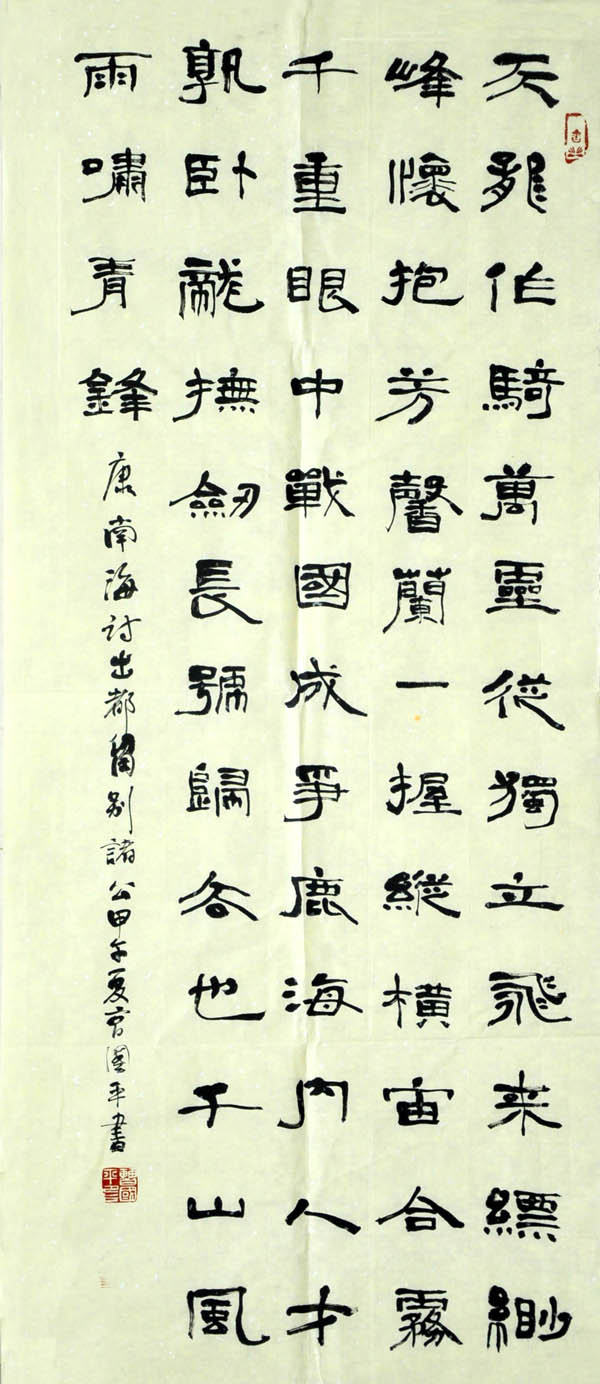 天龍作騎萬靈從獨立飛来縹緲
峰懷抱芳馨蘭一握縱橫宙合霧
千重眼中戰國成爭鹿海内人才
孰卧龍撫劒長號歸去也千山風
雨嘯青鋒
康南海詩出都留别諸公甲午夏曹國平書